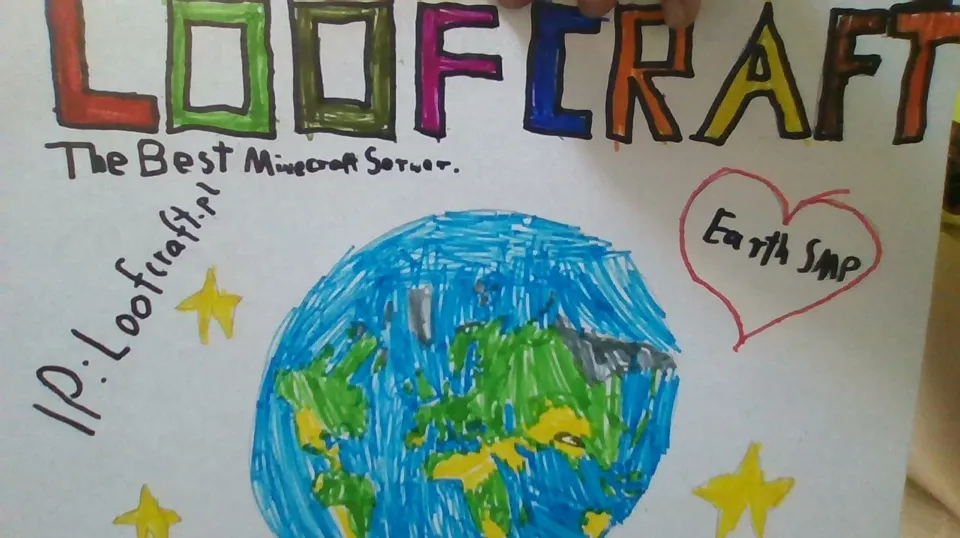 LOOFCRAFT
The Best Minecraft Server.
IP: Loofcraft.pl
Earth SMP